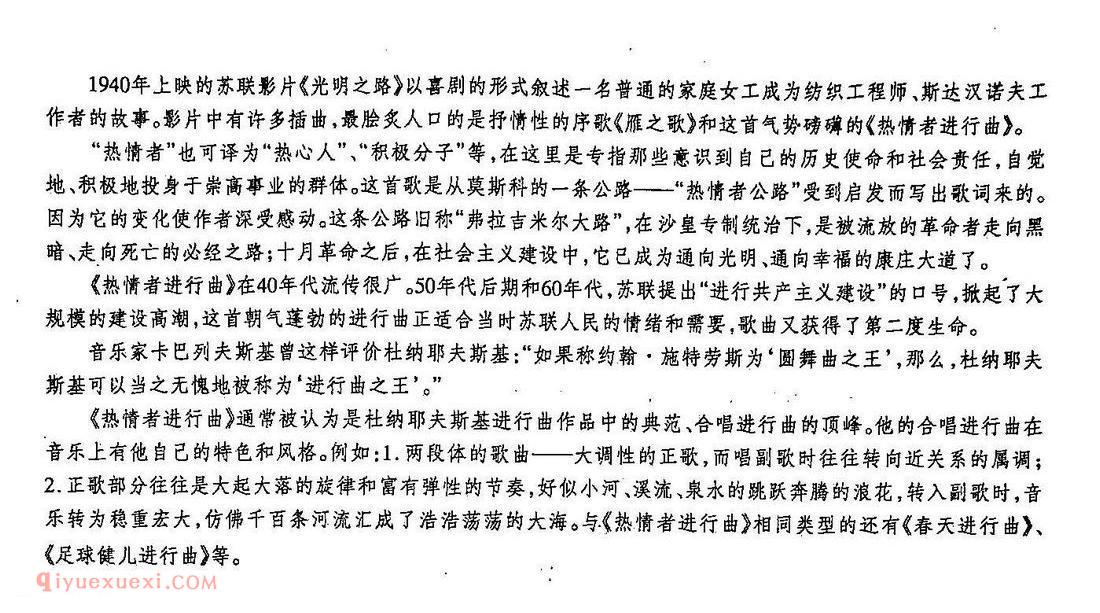 1940年上映的苏联影片《光明之路》以喜剧的形式叙述一名普通的家庭女工成为纺织工程师、斯达汉诺夫工
作者的故事。影片中有许多插曲，最脍炙人口的是抒情性的序歌《雁之歌》和这首气势磅礴的《热情者进行曲》。
“热情者”也可译为“热心人”、“积极分子”等，在这里是专指那些意识到自己的历史使命和社会责任，自觉
地、积极地投身于崇高事业的群体。这首歌是从莫斯科的一条公路——“热情者公路”受到启发而写出歌词来的。
因为它的变化使作者深受感动。这条公路旧称“弗拉吉米尔大路”，在沙皇专制统治下，是被流放的革命者走向黑
暗、走向死亡的必经之路；十月革命之后，在社会主义建设中，它已成为通向光明、通向幸福的康庄大道了。
《热情者进行曲》在40年代流传很广。50年代后期和60年代，苏联提出“进行共产主义建设”的口号，掀起了大
规模的建设高潮，这首朝气蓬勃的进行曲正适合当时苏联人民的情绪和需要，歌曲又获得了第二度生命。
音乐家卡巴列夫斯基曾这样评价杜纳耶夫斯基：“如果称约翰·施特劳斯为‘圆舞曲之王’，那么，杜纳耶夫
斯基可以当之无愧地被称为‘进行曲之王’。”
《热情者进行曲》通常被认为是杜纳耶夫斯基进行曲作品中的典范、合唱进行曲的顶峰。他的合唱进行曲在
音乐上有他自己的特色和风格。例如：1.两段体的歌曲——大调性的正歌，而唱副歌时往往转向近关系的属调；
2.正歌部分往往是大起大落的旋律和富有弹性的节奏，好似小河、溪流、泉水的跳跃奔腾的浪花，转入副歌时，音
乐转为稳重宏大，仿佛千百条河流汇成了浩浩荡荡的大海。与《热情者进行曲》相同类型的还有《春天进行曲》、
《足球健儿进行曲》等。
qiyuexuexi.COM